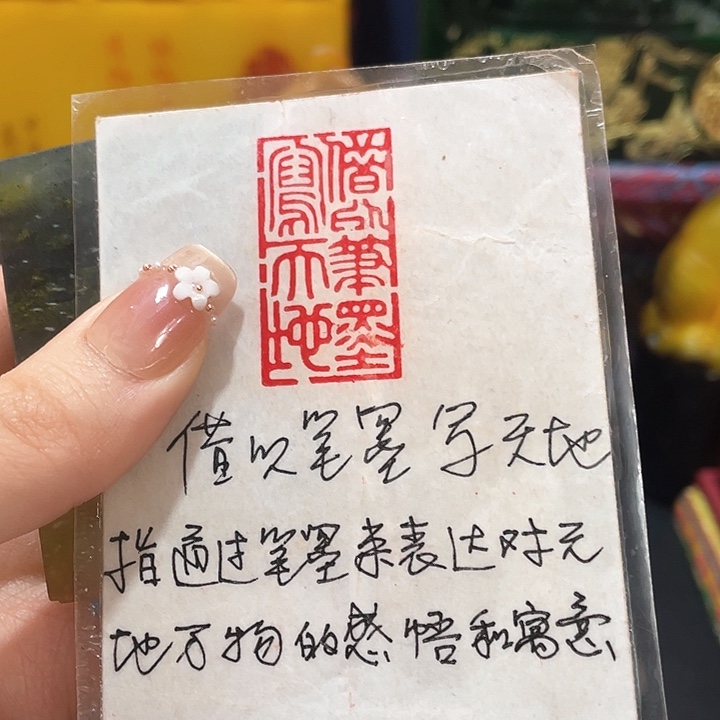 借以筆墨
寫天地
借以笔墨 写天地
指通过笔墨来表达对天
地万物的感悟和寓意